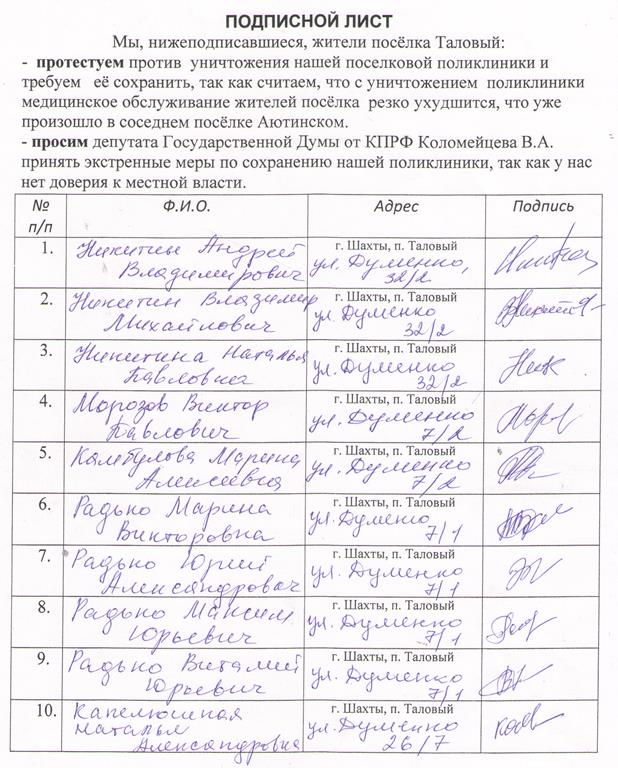 ПОДПИСНОЙ ЛИСТ
Мы, нижеподписавшиеся, жители посёлка Таловый:
- протестуем против уничтожения нашей поселковой поликлиники и
требуем её сохранить, так как считаем, что с уничтожением поликлиники
медицинское обслуживание жителей посёлка резко ухудшится, что уже
произошло в соседнем посёлке Аютинском.
- просим депутата Государственной Думы от КПРФ Коломейцева В.А.
принять экстренные меры по сохранению нашей поликлиники, так как у нас
нет доверия к местной власти.
№ п/п Ф.И.О. Адрес Подпись
1. Никитин Андрей г. Шахты, п. Таловый
Владимирович ул. Думенко, 32/2
2. Никитин Владимир г. Шахты, п. Таловый
Михайлович ул. Думенко 32/2
3. Никитина Наталья г. Шахты, п. Таловый
Павловна ул. Думенко 32/2
4. Морозов Виктор г. Шахты, п. Таловый
Павлович ул. Думенко 7/2
5. Камбулова Марина г. Шахты, п. Таловый
Алексеевна ул. Думенко 7/2
6. Радько Марина г. Шахты, п. Таловый
Викторовна ул. Думенко 7/1
7. Радько Юрий г. Шахты, п. Таловый
Александрович ул. Думенко 7/1
8. Радько Максим г. Шахты, п. Таловый
Юрьевич ул. Думенко 7/1
9. Радько Виталий г. Шахты, п. Таловый
Юрьевич ул. Думенко 7/1
10. Капелюшная г. Шахты, п. Таловый
Наталья ул. Думенко
Александровна 26/7